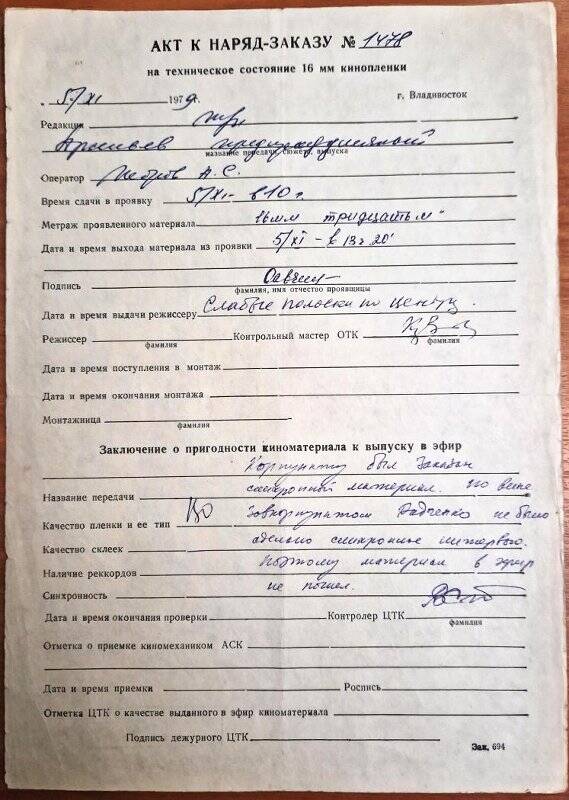 АКТ К НАРЯД-ЗАКАЗУ № 1478
на техническое состояние 16 мм кинопленки
„ 5/XI 1979г. г. Владивосток
Редакция
Арсеньев
название передачи, сюжета, выпуска
Оператор Петров А.С.
Время сдачи в проявку 5/XI - в 10 г.
Метраж проявленного материала 16мм тридцать м"
Дата и время выхода материала из проявки 5/XI - в 13ч 20'
Подпись
фамилия, имя отчество проявщицы
Дата и время выдачи режиссеру Слабые полоски по центру.
Режиссер Контрольный мастер ОТК
фамилия фамилия
Дата и время поступления в монтаж
Дата и время окончания монтажа
Монтажница
фамилия
Заключение о пригодности киноматериала к выпуску в эфир
Корпункту был заказан
синхронный материал. По вине
Название передачи
Завкорпунктом Радченко не было
Качество пленки и ее тип
сделано синхронное интервью.
Качество склеек
Поэтому материал в эфир
Наличие реккордов
не пошел.
Синхронность
Дата и время окончания проверки Контролер ЦТК
фамилия
Отметка о приемке киномехаником АСК
Дата и время приемки Роспись
Отметка ЦТК о качестве выданного в эфир киноматериала
Подпись дежурного ЦТК
Зак. 694